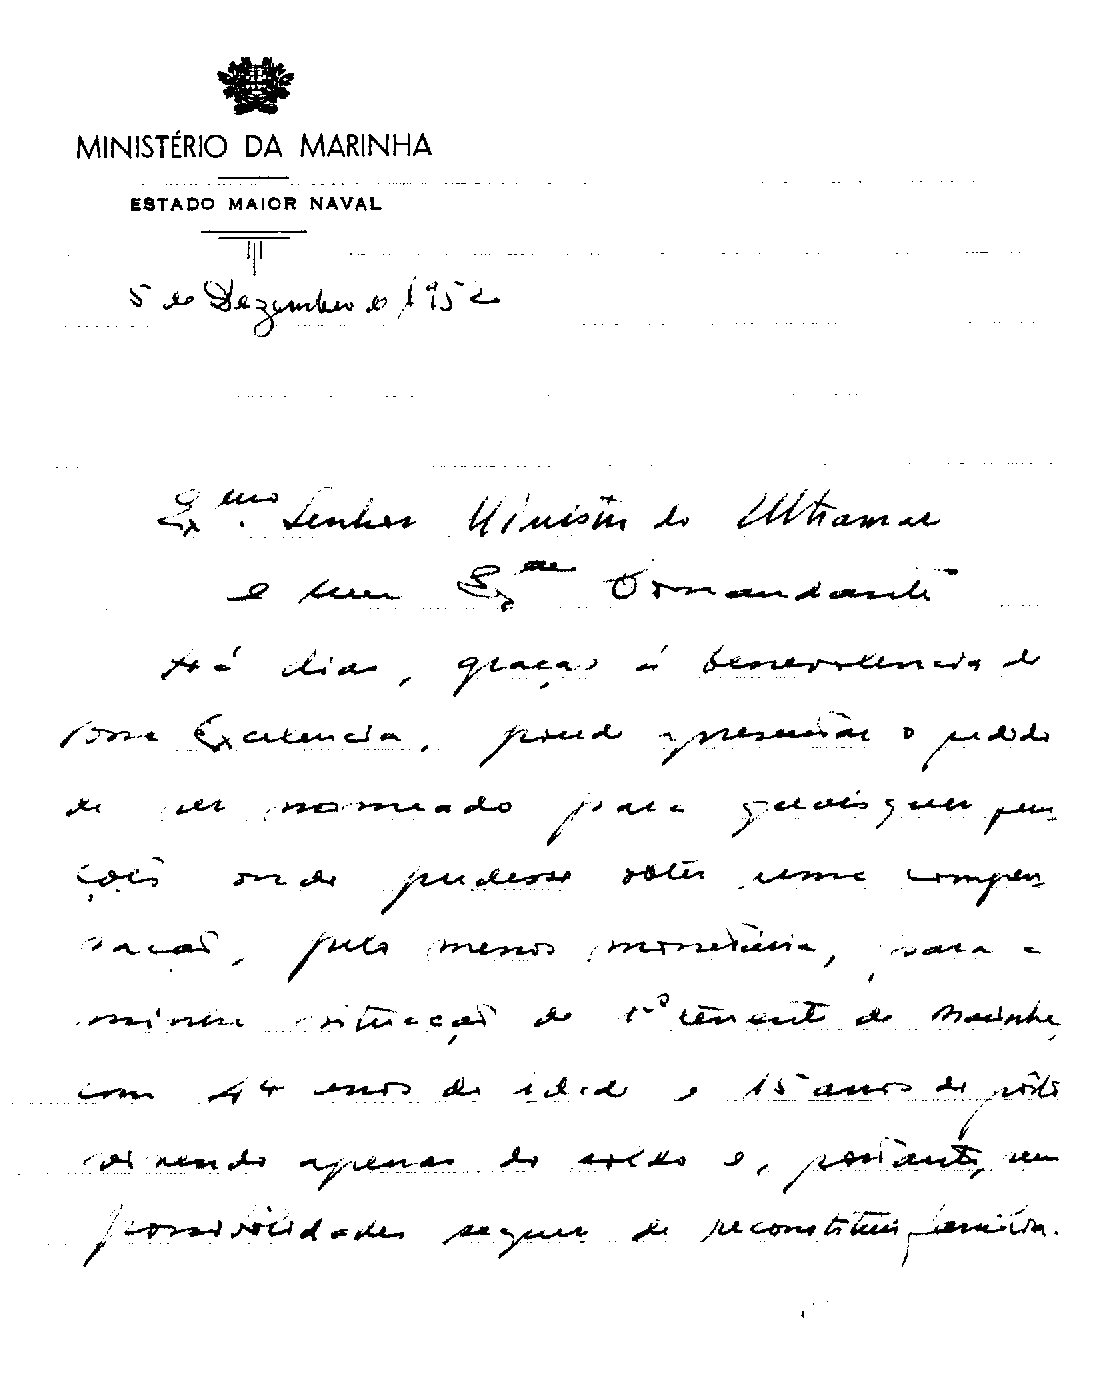 MINISTÉRIO DA MARINHA
ESTADO MAIOR NAVAL
5 de Dezembro de 1952
Exmo. Senhor Ministro do Ultramar
e meu Exmo Comandante
Há dias, graças á benevolencia de
Vossa Excelencia, pude apresentar o pedido
de ser nomeado para quaisquer fun
ções onde pudesse obter uma compen
sação, pelo menos monetária, para a
minha situação de 1º tenente da Marinha,
com 44 anos de idade e 15 anos de pôsto
vivendo apenas do soldo e, portanto, sem
possibilidades sequer de reconstituir familia.